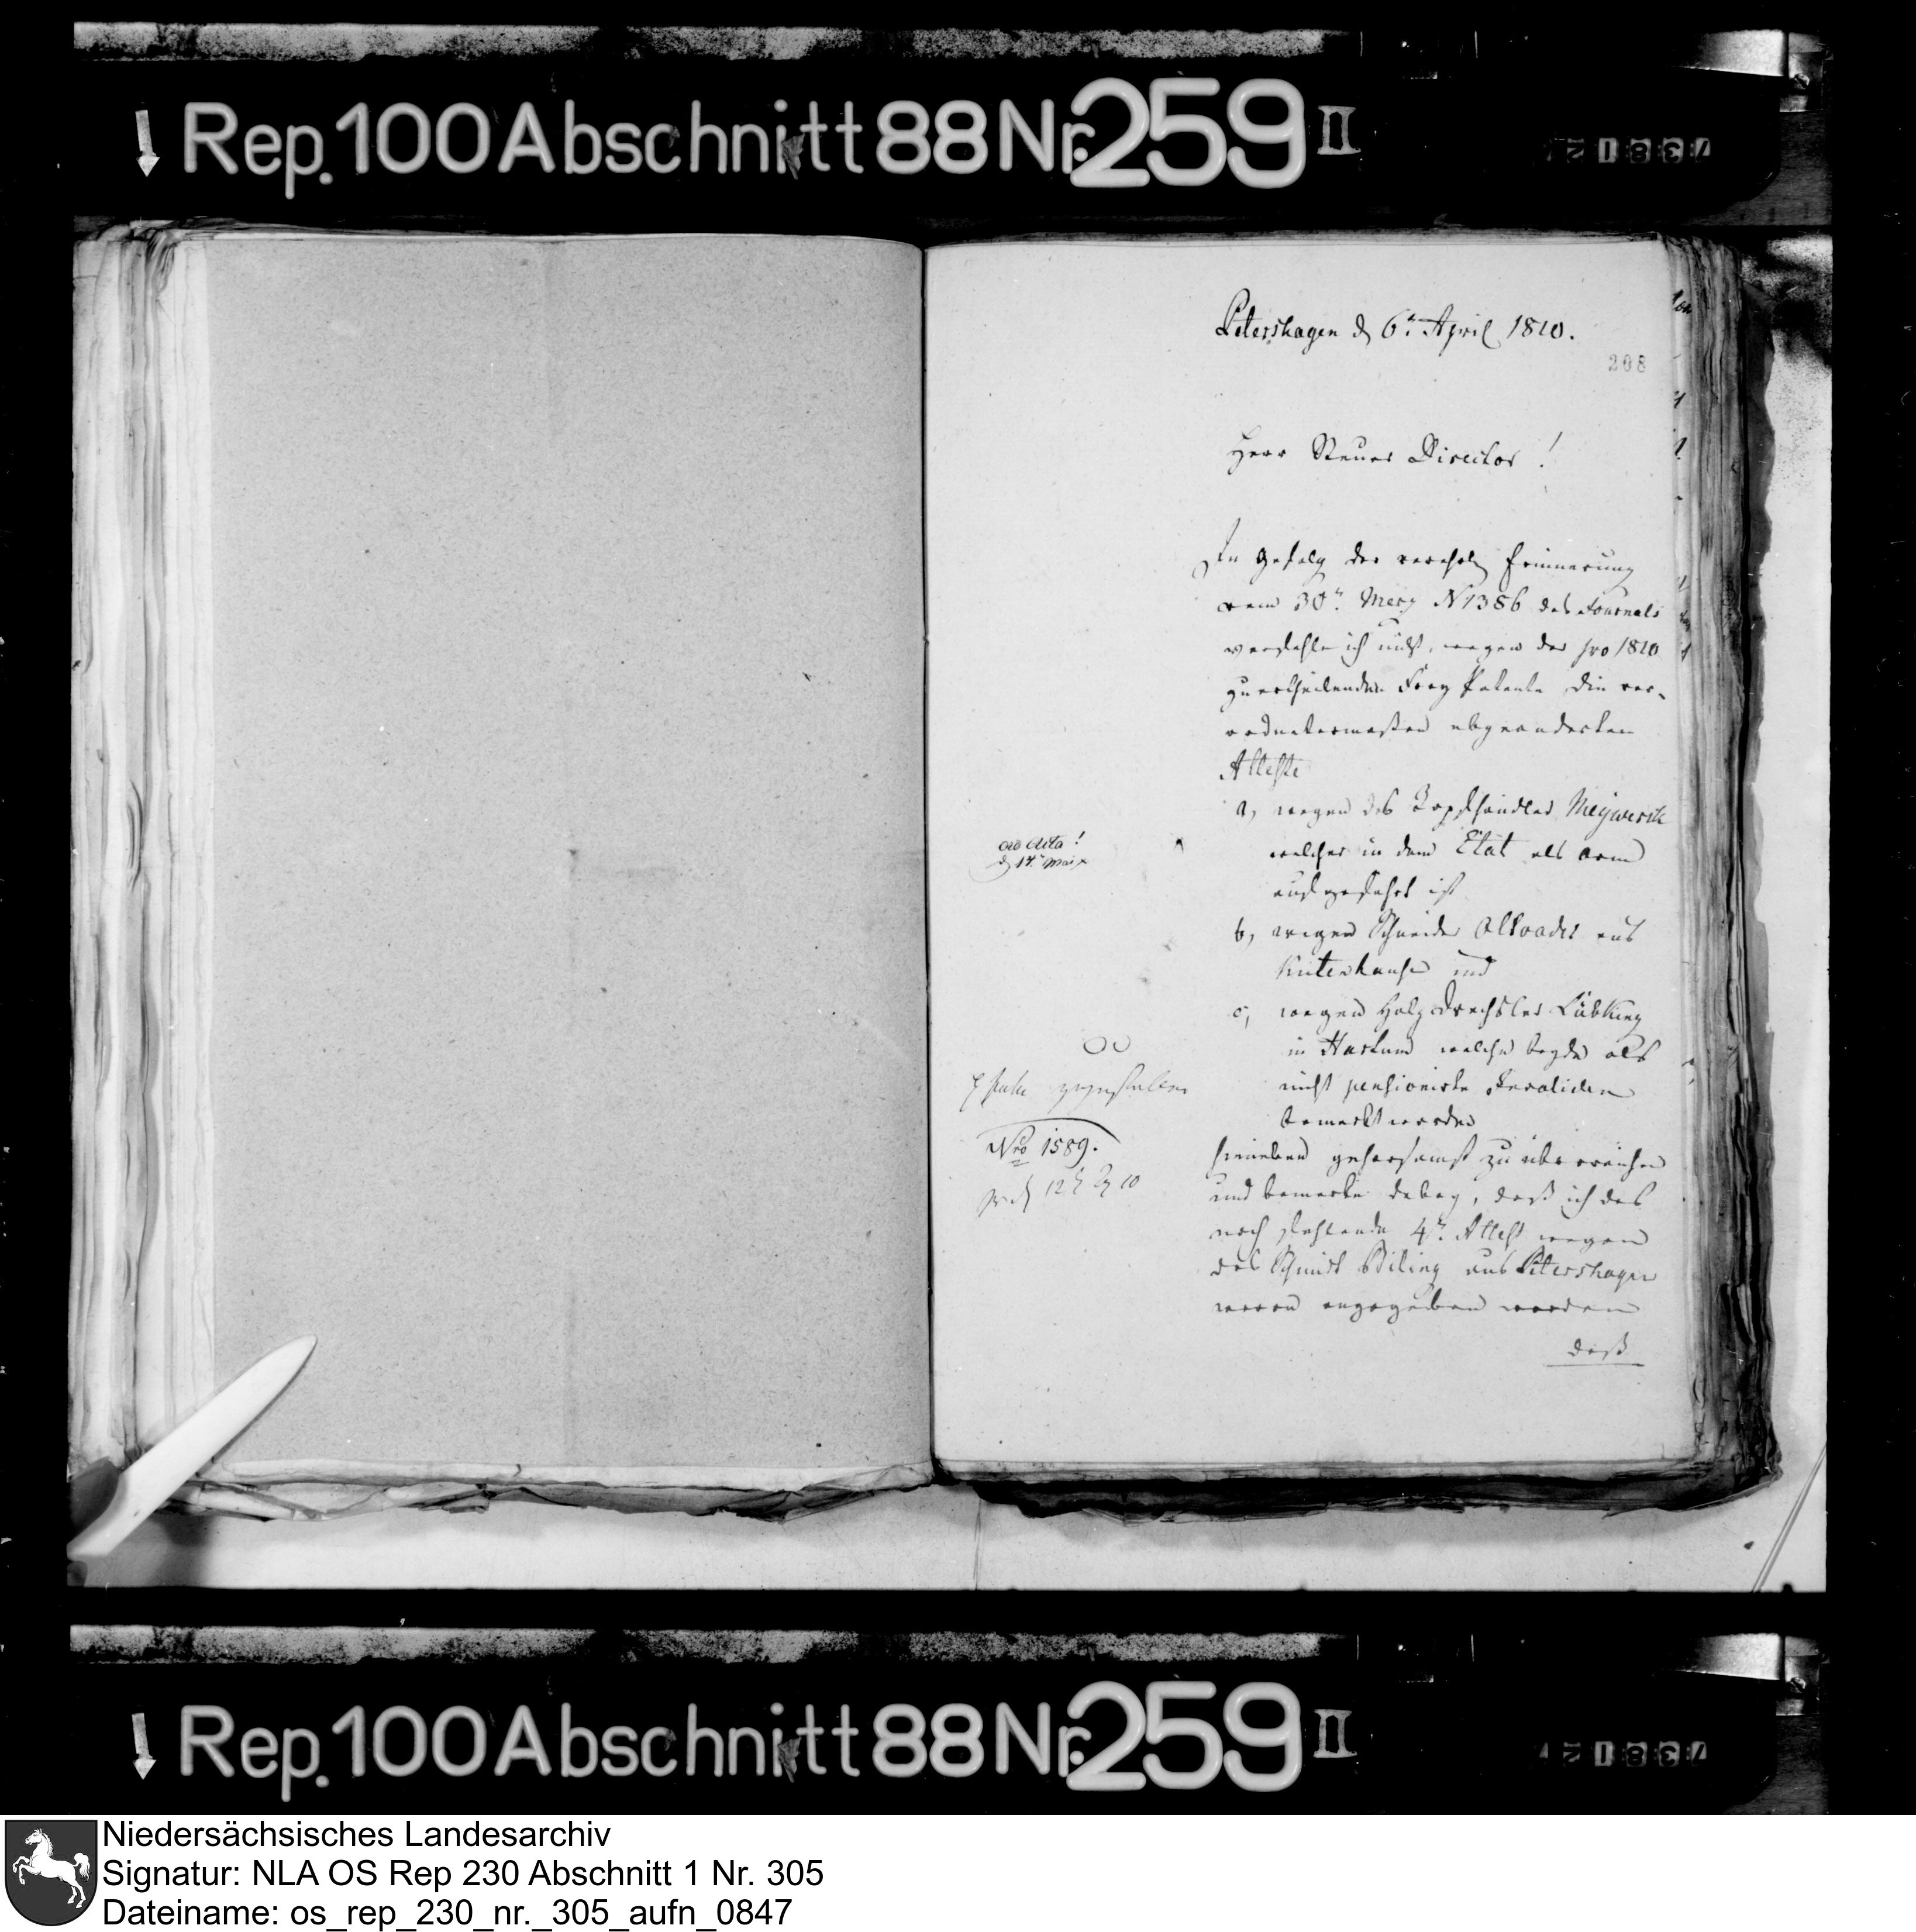 Rep. 100 Abschnitt 88 Nr. 259 II
Petershagen d 6t. April 1810.
208
Herr Steuer Director !
In Gefolg der verehrl Erinnerung
vom 30t. Merz N 1386 des Journals
verfehle ich nicht, wegen der pro 1810
zu ertheilenden Frey Patente die ver-
ordnetermaßen abgeänderten
Atteste
a, wegen des Topfhändler Meywerk
welcher in dem Etat als arm
aufgeführt ist
b, wegen Schneider aus
Kutenhausen und
c, wegen Holzdrechsler Lübking
in Hartum welche beyde als
nicht pensionirte Invaliden
bemerkt worden
hieneben gehorsamst zu überreichen
und bemerke dabey, daß ich das
noch fehlende 4te. Attest wegen
des Schmidt aus Petershagen
worden
daß
ad Acta !
d 14. Mai
Nro 1589.
Rep. 100 Abschnitt 88 Nr. 259 II
Niedersächsisches Landesarchiv
Signatur: NLA OS Rep 230 Abschnitt 1 Nr. 305
Dateiname: os_rep_230_nr._305_aufn_0847